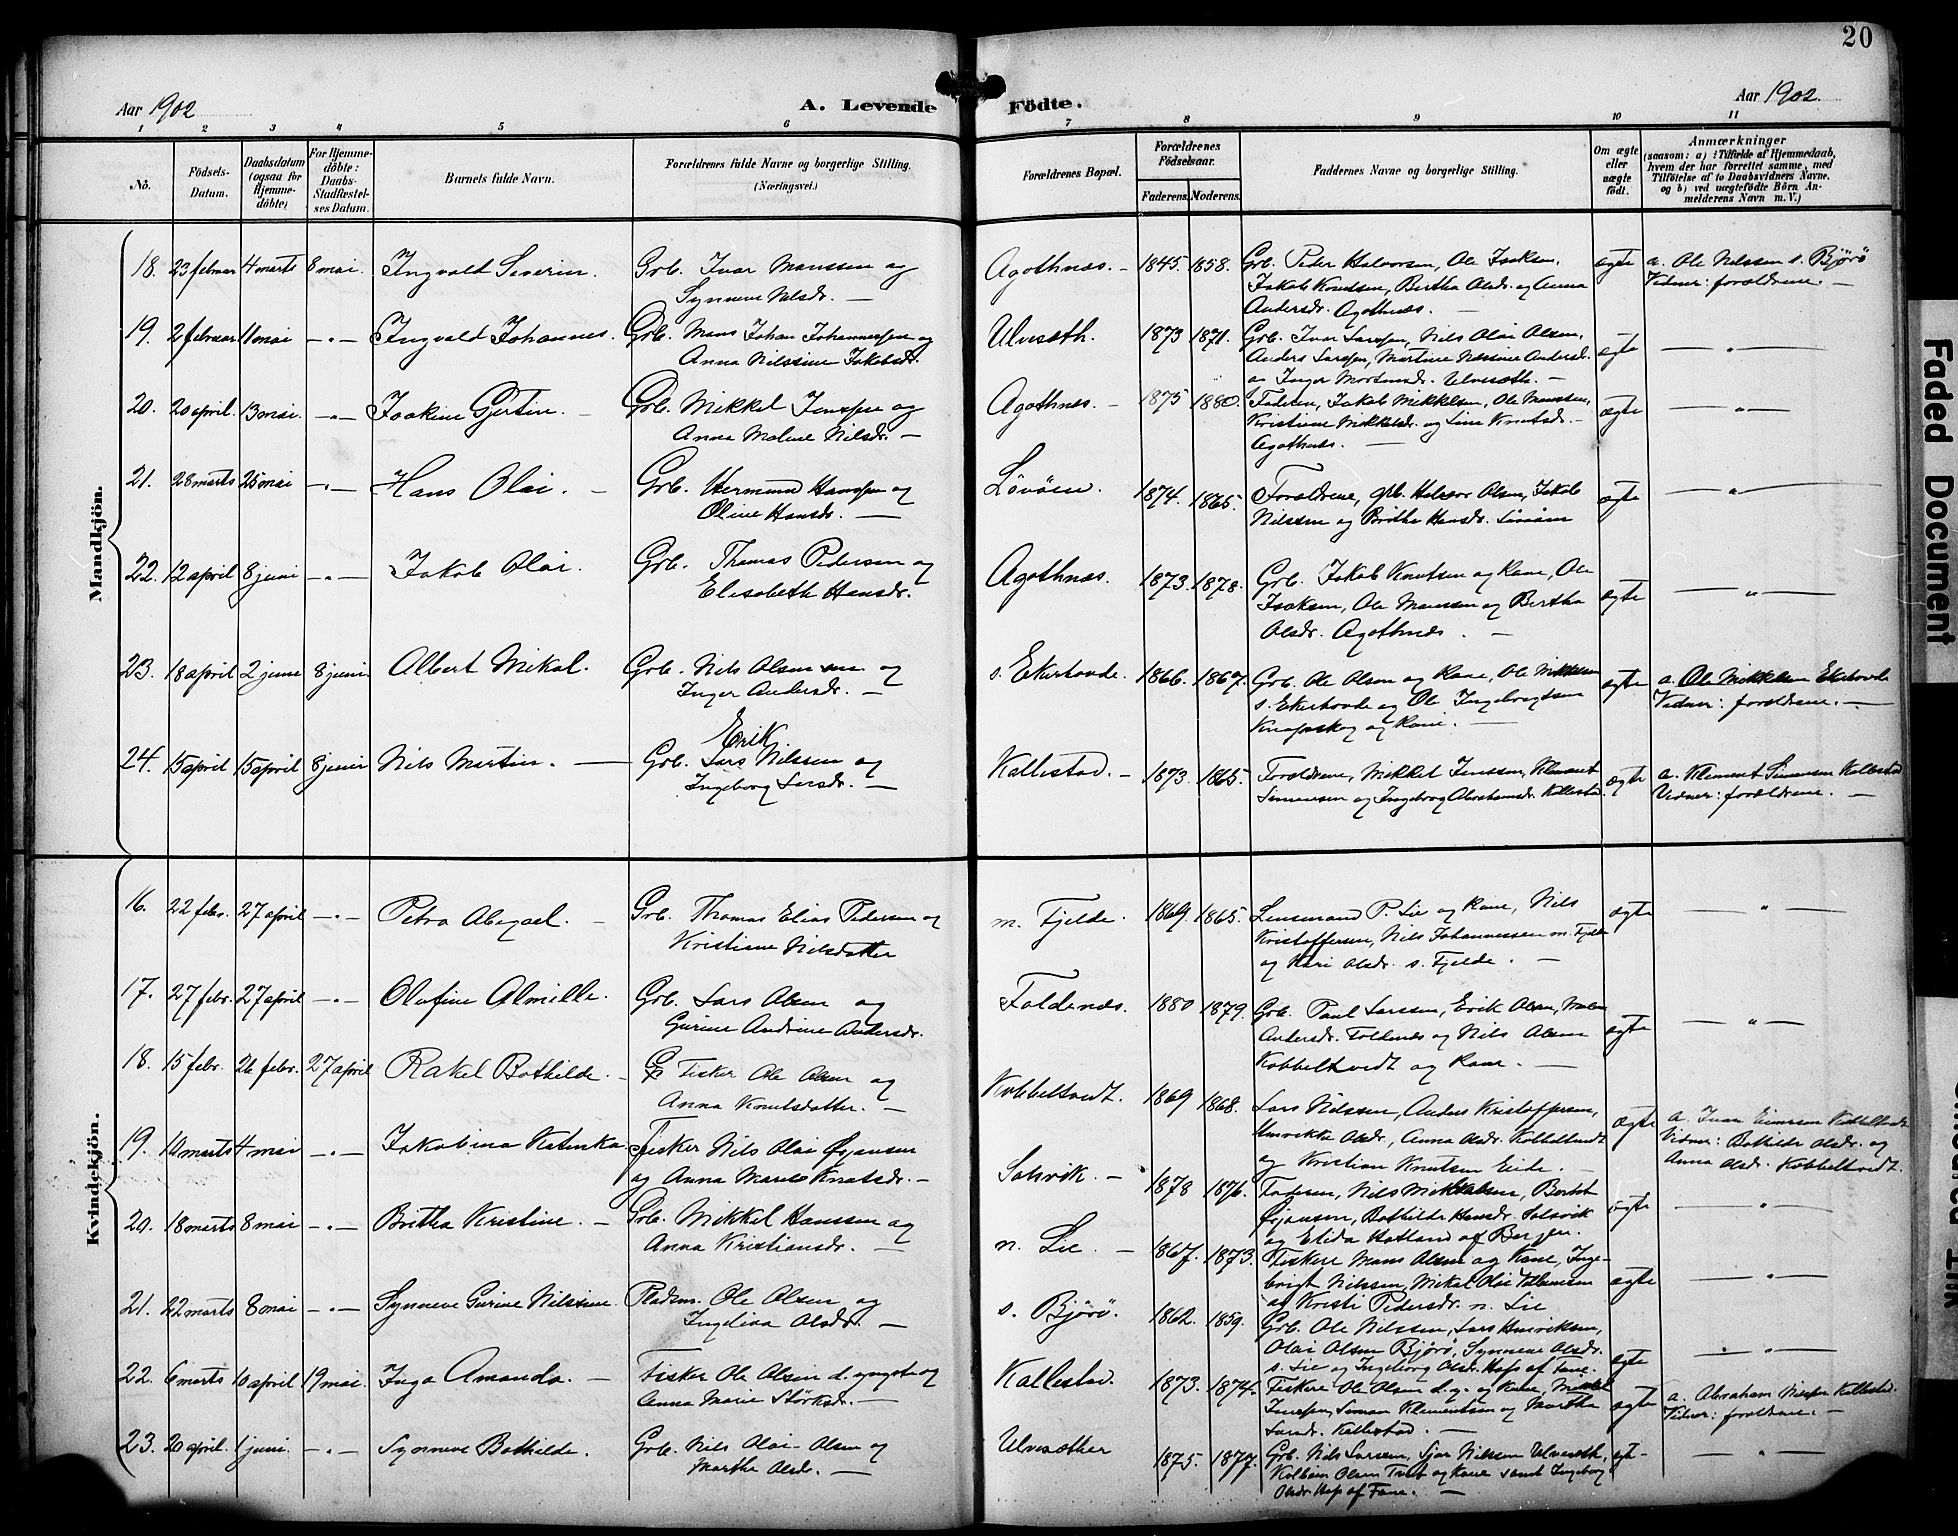 20
Aar 1902
A. Levende
Födte.
Aar 1902.
1 2 3 4 5 6 7 8 9 10 11
No.
Födsels-
Datum.
Daabsdatum
(ogsaa for
Hjemme-
döbte)
For Hjemme-
döbte:
Daabs-
Stadfæstel-
ses Datum.
Barnets fulde Navn.
Forældrenes fulde Navne og borgerlige Stilling.
(Næringsvei.)
Forældrenes Bopæl.
Forældrenes
Födselsaar.
Faderens. Moderens.
Faddernes Navne og borgerlige Stilling.
Om ægte
eller
uægte
født.
Anmærkninger
(saasom: a) i Tilfælde af Hjemmedaab,
hvem der har forrettet samme, med
Tilföielse af to Daabsvidners Navne,
og b) ved uægtefödte Börn An-
melderens Navn m. V.)
Mandkjön.
18. 23 februar 4 marts 8 mai. Ingvald Severin. Grb. Ivar Monssen og
Synneve Nilsdr. —
Agothnæs. — 1845. 1858. Grb. Peder Halvorsen, Ole Isaksen,
Jakob Knutsen, Bertha Olsdr. og Anna
Andersdr. Agothnæs. —
ægte a. Ole Nilssen s. Bjørø
Vidner: forældrene. —
19. 2 februar 11 mai —"— Ingvald Johannes. Grb. Mons Johan Johannessen og
Anna Nilssine Jakobsdr.
Ulvesæth. 1873 1871. Grb. Ivar Larssen, Nils Olai Olsen,
Anders Larssen, Martine Andersdr.
og Inger Ulvesæth. —
ægte —"—
20. 20 april. 13 mai. —"— Joakim Gjertin. — Grb. Mikkel Jenssen og
Anna Malene Nilsdr. —
Agothnæs. — 1875 1880. Faderen, Jakob Mikkelsen, Ole Monssen,
Kristine Mikkelsdr. og Line Knutsdr.
Agothnæs. —
ægte —"—
21. 28 marts 25 mai —"— Hans Olai. — Grb. Hermund Hanssen og
Oline Hansdr. —
Løvøen. 1874. 1865. Forældrene, grb. Halvor Olsen, Jakob
Nilssen og Brithe Hansdr. Løvøen
ægte —"—
22. 12 april 8 juni —"— Jakob Olai. Grb. Thomas Pedersen og
Elisabeth Hansdr.
Agothnæs. 1873. 1878. Grb. Jakob Knutsen og Kone, Ole
Isaksen, Ole Monssen og Bertha
Olsdr. Agothnæs. —
ægte —"—
23. 18 april 2 juni 8 juni Albert Mikal. Grb. Nils Olsen og
Inger Andersdr. —
s. Ekerhovde. 1866. 1867. Grb. Ole Olsen og Kone, Ole Mikkelsen
s. Ekerhovde og Ole Ingebrigtsen
Knapskog og Kone. —
ægte a. Ole Mikkelsen Ekerhovde
Vidner: forældrene. —
Erik
24. 15 april 15 april 8 juni Nils Martin. — Grb. Lars Nilssen og
Ingeborg Larsdr. —
Kallestad. — 1873. 1865. Forældrene, Mikkel Jenssen, Klement
Simonsen og Ingeborg Abrahamsdr. Kallestad.
ægte a. Klement Simonsen Kallestad
Vidner: forældrene. —
Kvindekjön.
16. 22 febr. 27 april —"— Petra Abigael. — Grb. Thomas Elias Pedersen og
Kristine Nilsdatter
m. Fjelde. 1869. 1865. Lensmand P. Lie og Kone, Nils
Kristoffersen, Nils Johannessen m. Fjelde
og Kari Olsdr. s. Fjelde. —
ægte —"—
17. 27 febr. 27 april —"— Olufine Almille. Grb. Lars Olsen og
Gurine Andrine Andersdr.
Foldenæs. 1880 1879. Grb. Paul Larssen, Erik Olsen, Malene
Andersdr. Foldenæs og Nils Olsen
Kobbeltvedt og Kone. —
ægte —"—
18. 15 febr. 26 febr. 27 april Rakel Bothilde. — Fisker Ole Olsen og
Anna Knutsdatter. —
Kobbeltvedt. 1869 1868. Lars Nilssen, Anders Kristoffersen,
Henrikke Olsdr., Anna Olsdr. Kobbeltvedt
og Kristian Knutsen Eide. —
ægte a. Ivar Kobbeltvedt
Vidner: Bothilde Olsdr. og
Anna Olsdr. Kobbeltvedt.
19. 10 marts 4 mai —"— Jakobina Katinka Fisker Nils Olai Ørjansen
og Anna Marte Knutsdr. —
Solsvik. — 1878 1876. Faderen, Nils Mikkelsen, Berthel
Ørjansen, Bothilde Hansdr. Solsvik
og Elida Hatland af Bergen.
ægte —"—
20. 18 marts 8 mai —"— Britha Kristine. — Grb. Mikkel Hanssen og
Anna Kristiansdr. —
n. Lie. — 1867. 1873. Fiskere Mons Olsen og Kone, Inge-
brigt Nilssen, Mikal Olai Villumsen
og Kristi Pedersdr. n. Lie
ægte —"—
21. 22 marts 8 mai —"— Synneve Gurine Nilssine Pladsm. Ole Olsen og
Ingeliva Olsdr. —
s. Bjørø. 1862. 1859. Grb. Ole Nilssen, Lars Henriksen,
Olai Olsen Bjørø, Synneve Olsdr.
s. Lie og Ingeborg Olsdr. Hop af Fane.
ægte —"—
22. 6 marts 10 april 19 mai. Inga Amanda. — Fisker Ole Olsen d. yngste og
Anna Marie Størksdr. —
Kallestad. 1873. 1874. Fiskere Ole Olsen d. y. og Kone, Mikkel
Jenssen, Simon Klementsen og Martha
Larsdr. Kallestad. —
ægte a. Abraham Kallestad.
Vidner: forældrene. —
23. 20 april. 1 juni. —"— Synneve Bothilde. Grb. Nils Olai Olsen og
Marthe Olsdr. —
Ulvesæther 1875. 1877. Grb. Nils Larssen, Sjur Nilssen Ulvesæth,
Kolbein Olsen og Kone samt Ingeborg
Olsdr. Hop af Fane. —
ægte —"—
Faded Document